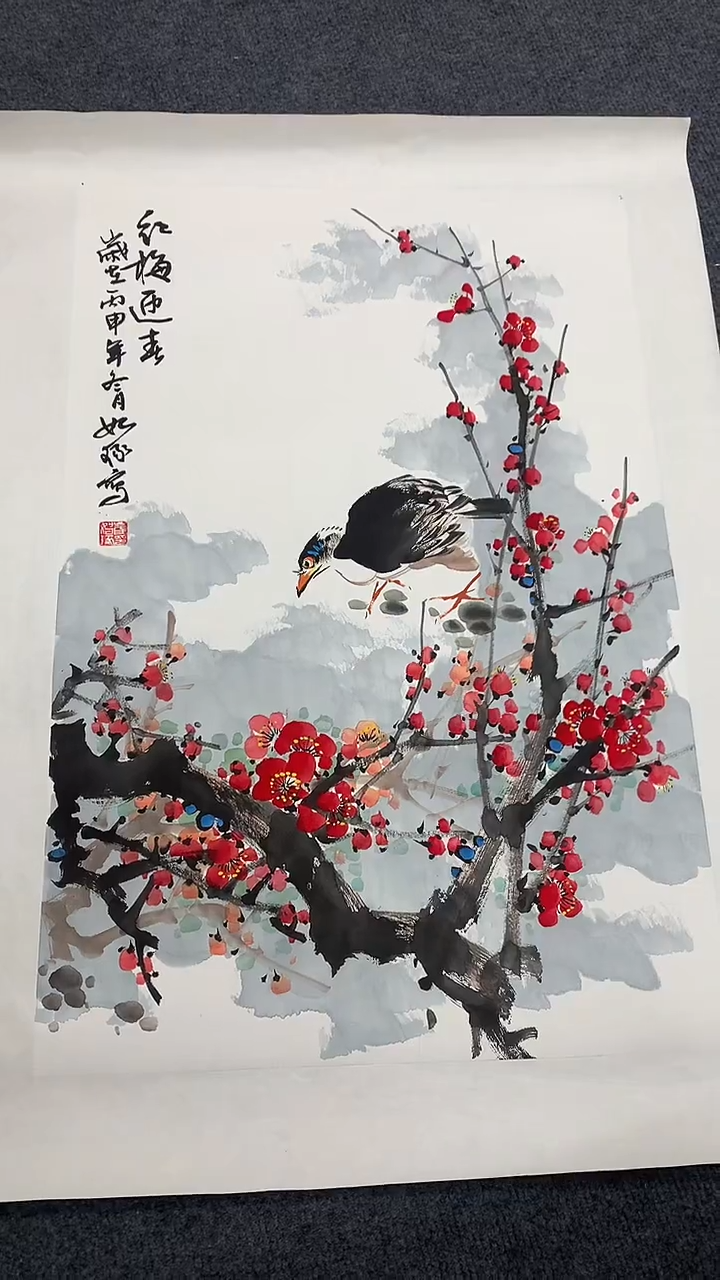 红梅迎春
岁在丙申年冬月如琢写